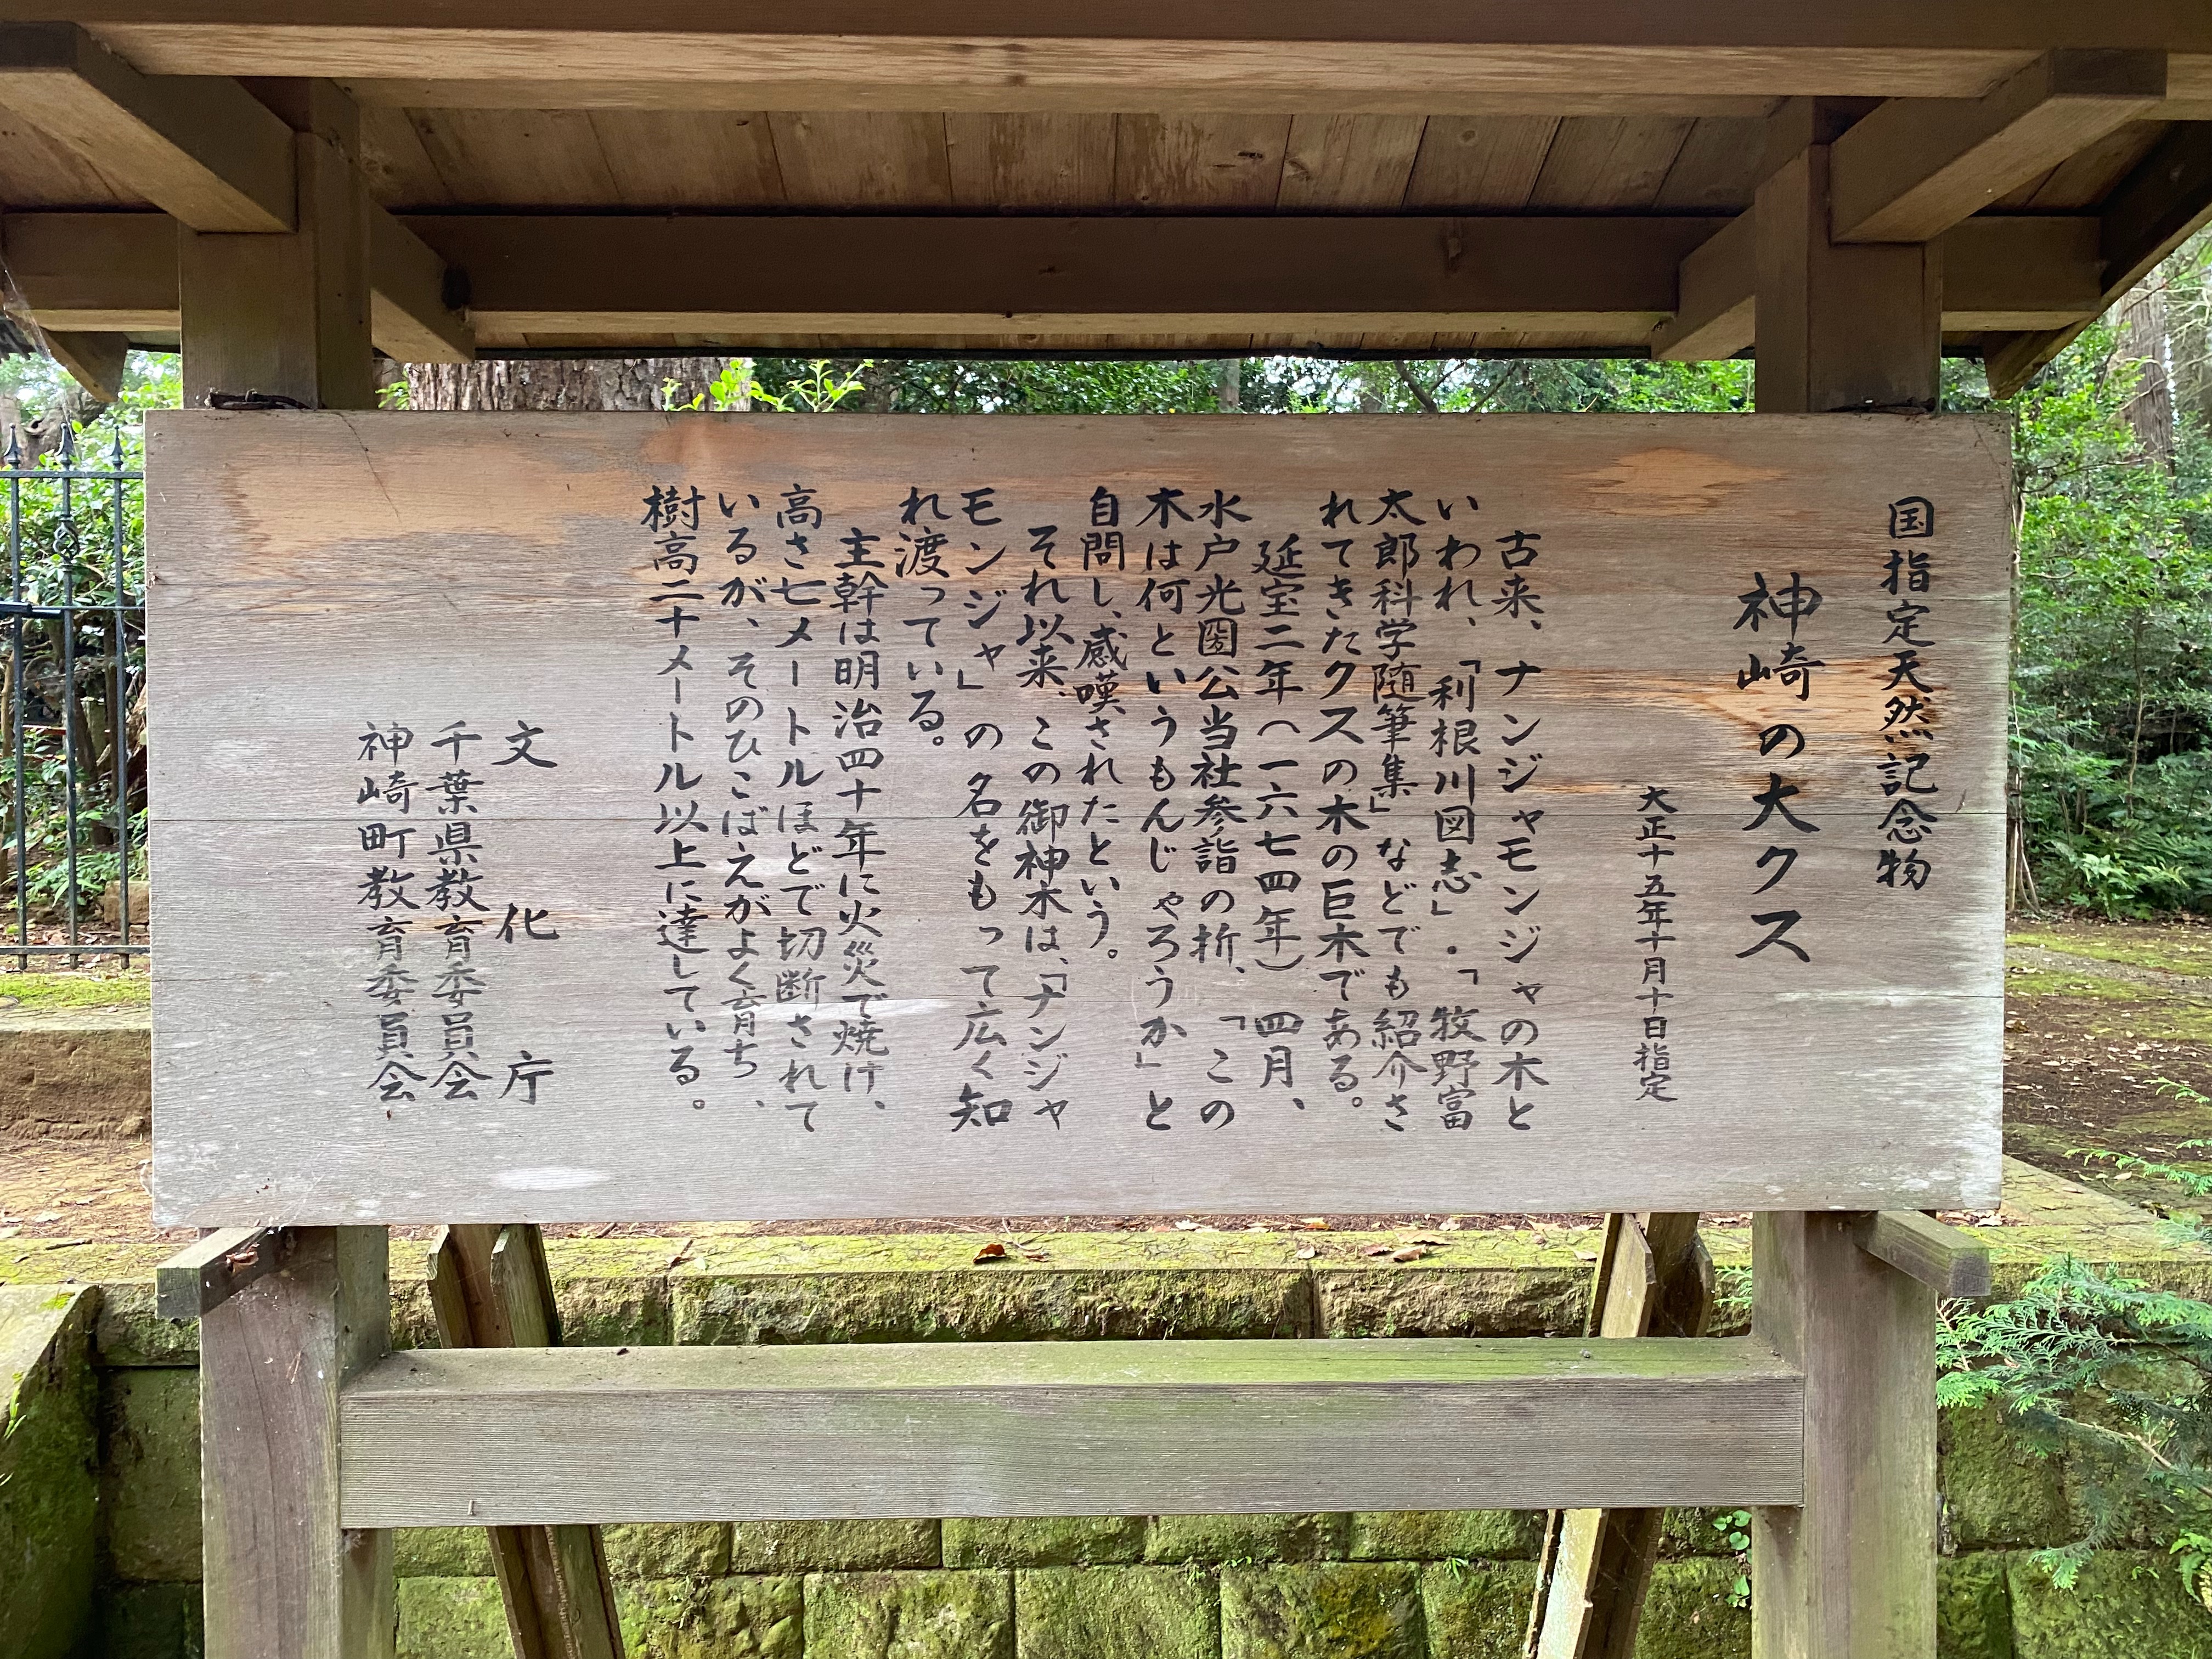 国指定天然記念物
神崎の大クス
大正十五年十月十日指定
古来、ナンジャモンジャの木と
いわれ、「利根川図志」・「牧野富
太郎科学随筆集」などでも紹介さ
れてきたクスの木の巨木である。
延宝二年（一六七四年）四月、
水戸光圀公当社参詣の折、「この
木は何というもんじゃろうか」と
自問し、感嘆されたという。
それ以来、この御神木は、「ナンジャ
モンジャ」の名をもって広く知
れ渡っている。
主幹は明治四十年に火災で焼け、
高さ七メートルほどで切断されて
いるが、そのひこばえがよく育ち、
樹高二十メートル以上に達している。
文化庁
千葉県教育委員会
神崎町教育委員会